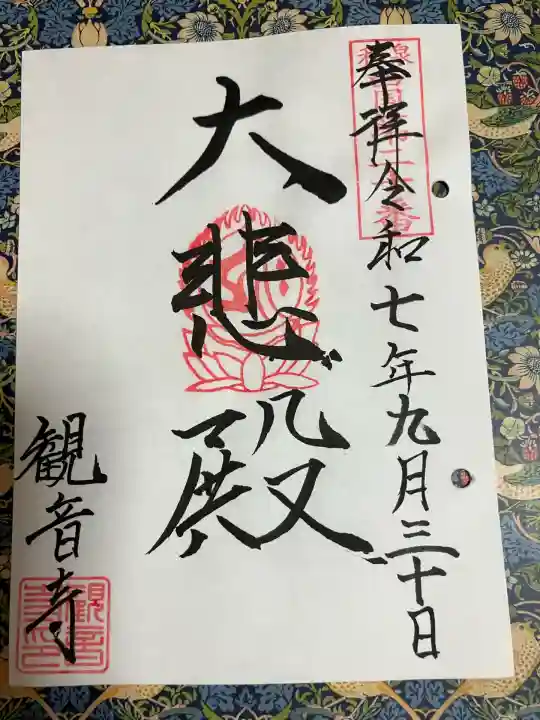 奉拝令和七年九月三十日
大悲殿
観音寺